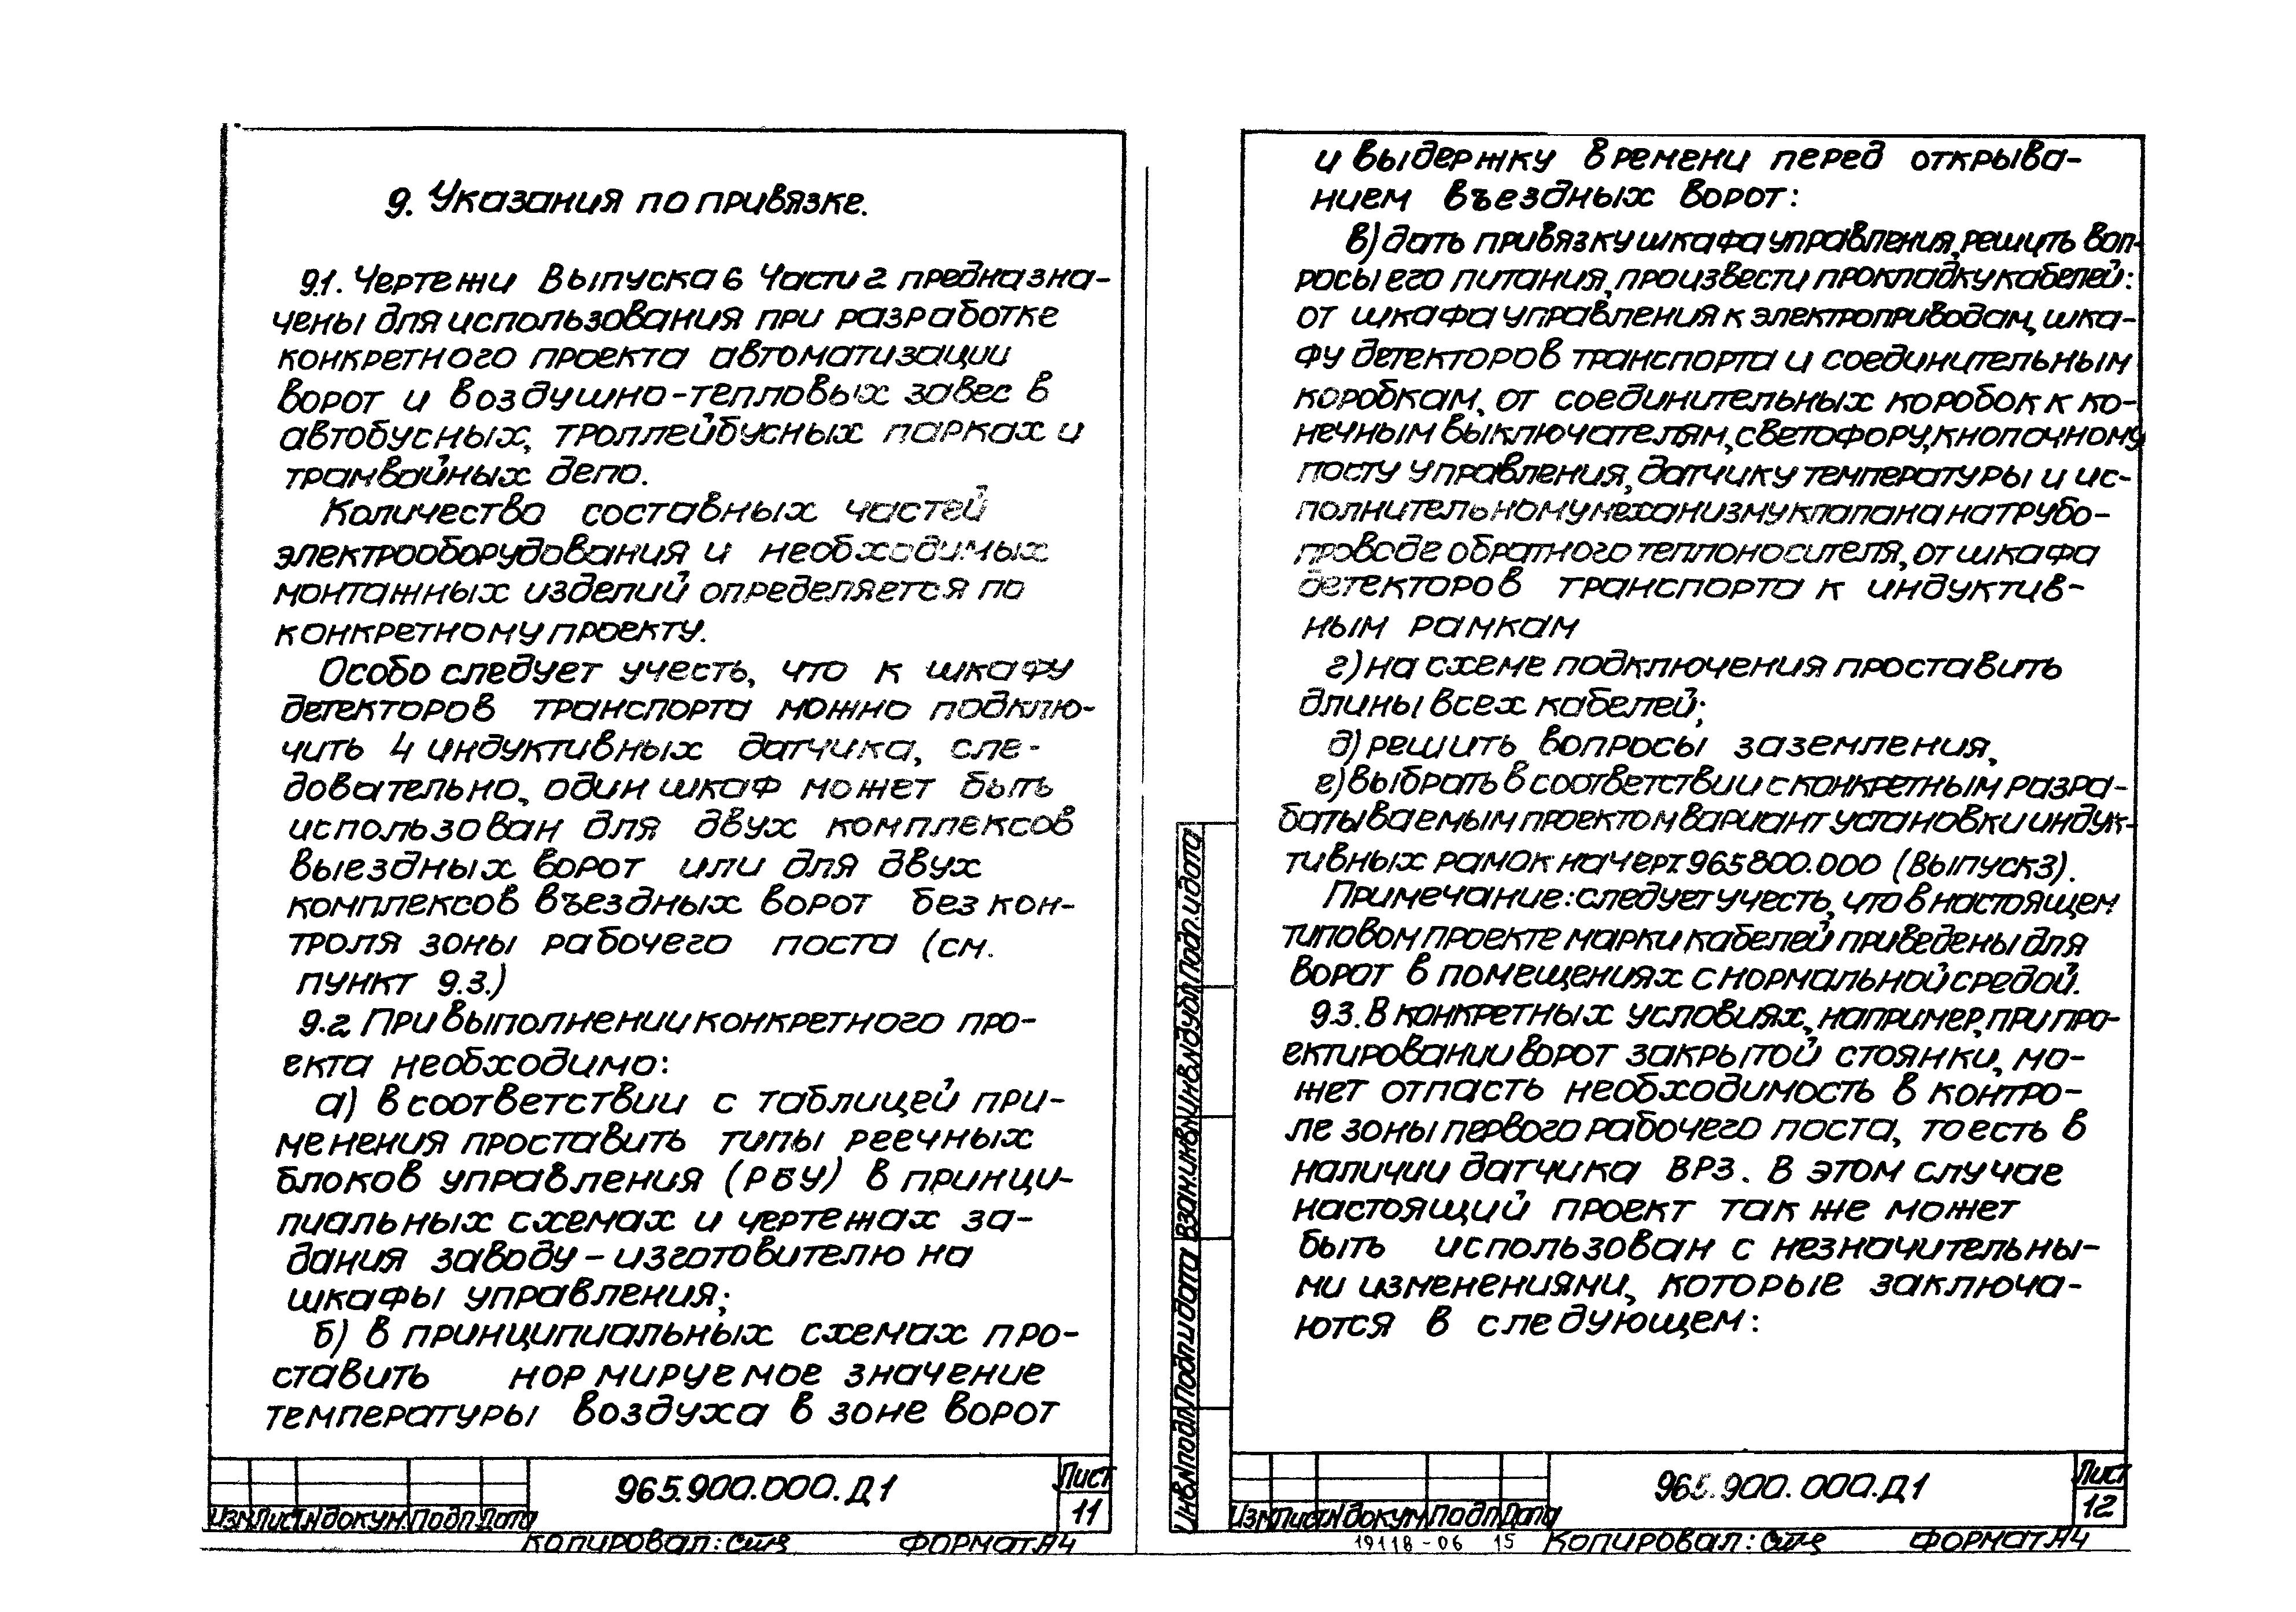 9. Указания по привязке.
9.1. Чертежи Выпуска 6 Части 2 предназна-
чены для использования при разработке
конкретного проекта автоматизации
ворот и воздушно-тепловых завес в
автобусных, троллейбусных парках и
трамвайных депо.
Количество составных частей
электрооборудования и необходимых
монтажных изделий определяется по
конкретному проекту.
Особо следует учесть, что к шкафу
детекторов транспорта можно подклю-
чить 4 индуктивных датчика, сле-
довательно, один шкаф может быть
использован для двух комплексов
выездных ворот или для двух
комплексов въездных ворот без кон-
троля зоны рабочего поста (см.
пункт 9.3.)
9.2. При выполнении конкретного про-
екта необходимо:
а) в соответствии с таблицей при-
менения проставить типы реечных
блоков управления (РБУ) в принци-
пиальных схемах и чертежах за-
дания заводу-изготовителю на
шкафы управления;
б) в принципиальных схемах про-
ставить нормируемое значение
температуры воздуха в зоне ворот
965.900.000.Д1
Лист
11
Изм Лист N докум. Подп. Дата
Копировал:
Формат А4
и выдержку времени перед открыва-
нием въездных ворот:
в) дать привязку шкафа управления, решить воп-
росы его питания, произвести прокладку кабелей:
от шкафа управления к электроприводам, шка-
фу детекторов транспорта и соединительным
коробкам, от соединительных коробок к ко-
нечным выключателям, светофору, кнопочному
посту управления, датчику температуры и ис-
полнительному механизму клапана на трубо-
проводе обратного теплоносителя, от шкафа
детекторов транспорта к индуктив-
ным рамкам
г) на схеме подключения проставить
длины всех кабелей;
д) решить вопросы заземления,
е) выбрать в соответствии с конкретным разра-
батываемым проектом вариант установки индук-
тивных рамок на черт. 965800.000 (Выпуск 3).
Примечание: следует учесть, что в настоящем
типовом проекте марки кабелей приведены для
ворот в помещениях с нормальной средой.
9.3. В конкретных условиях, например, при про-
ектировании ворот закрытой стоянки, мо-
жет отпасть необходимость в контро-
ле зоны первого рабочего поста, то есть в
наличии датчика ВР3. В этом случае
настоящий проект так же может
быть использован с незначительны-
ми изменениями, которые заключа-
ются в следующем:
Инв.N подл. Подп. и дата Взам.инв.N Инв.N дубл. Подп. и дата
965.900.000.Д1
Лист
12
Изм Лист N докум Подп. Дата
19118-06 15
Копировал:
Формат А4